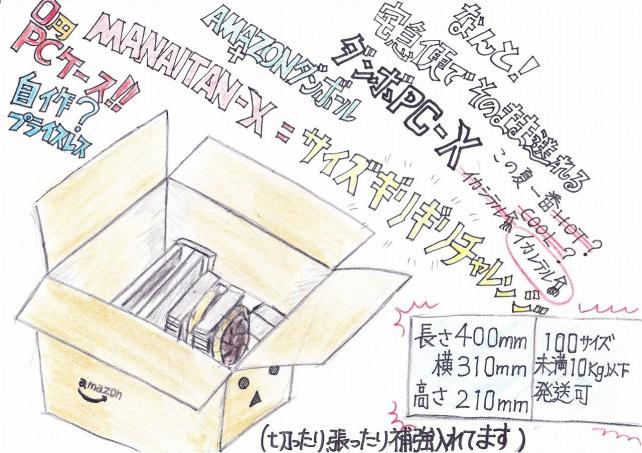 0円
PCケース!!
自作?
プライスレス
MANAITAN-X
+
AMAZONダンボール
=
ダンボPC-X
サイズギリギリチャレンジ
なんと!
宅急便で そのまま送れる
この夏一番HOT=?
イカシテル COOL=?
イカレテル
amazon
長さ400mm
横310mm
高さ210mm
100サイズ
未満10Kg以下
発送可
(切ったり、張ったり補強入れてます)